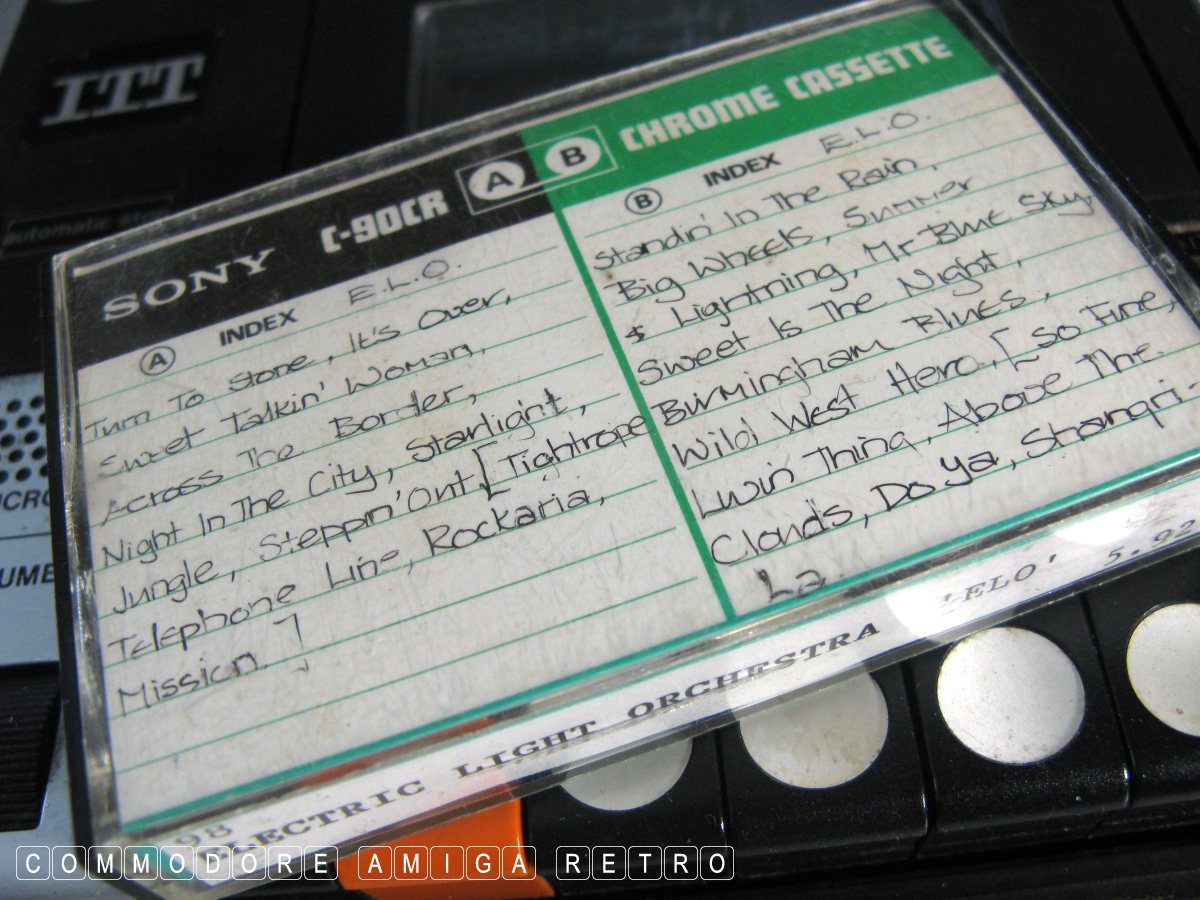 ITT
automatic stop
SONY C-90CR A B CHROME CASSETTE
A INDEX E.L.O.
Turn To Stone, It's Over,
Sweet Talkin' Woman,
Across The Border,
Night In The City, Starlight,
Jungle, Steppin' Out, [Tightrope
Telephone Line, Rockaria,
Mission. ]
B INDEX E.L.O.
Standin' In The Rain,
Big Wheels, Summer
$ Lightning, Mr Blue Sky.
Sweet Is The Night,
Birmingham Blues,
Wild West Hero, [So Fine,
Livin Thing, Above The
Clouds, Do Ya, Shangri-
La.
98 ELECTRIC LIGHT ORCHESTRA 'ELO' 5.02
COMMODORE AMIGA RETRO